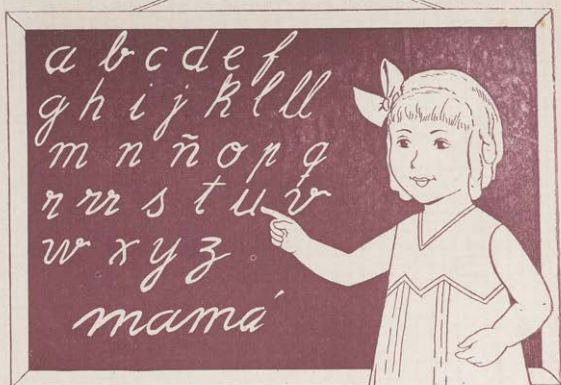 a b c d e f
g h i j k l ll
m n ñ o p q
r rr s t u v
w x y z
mamá